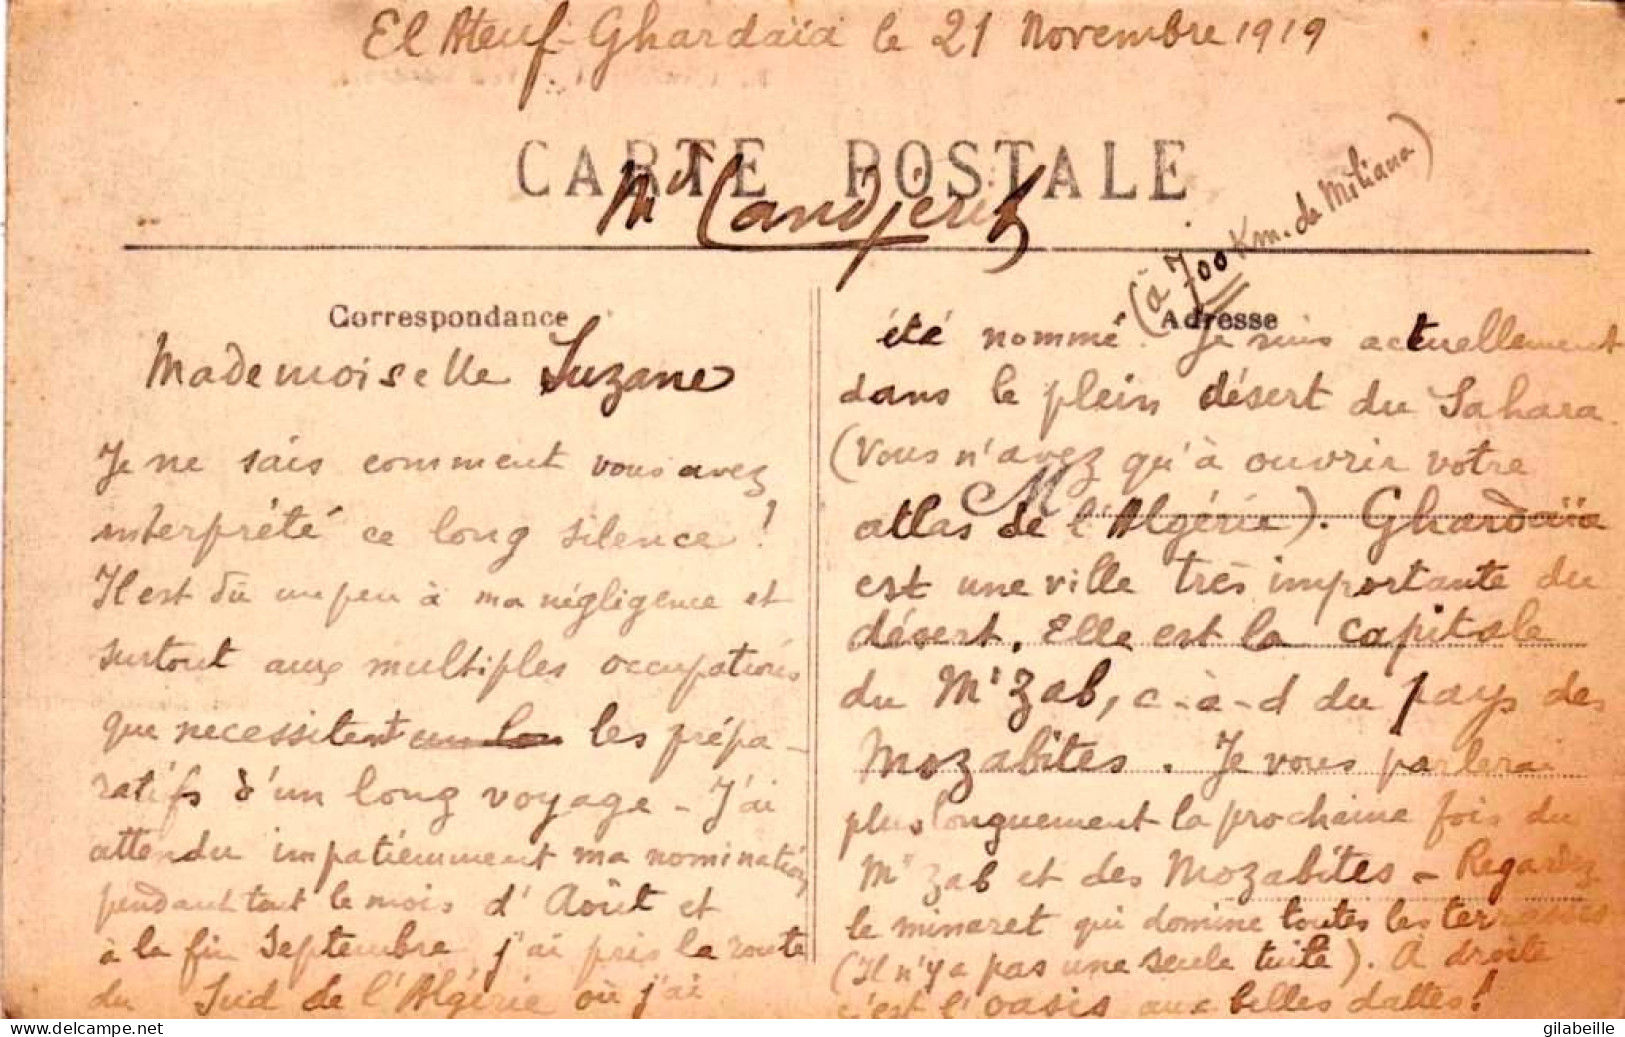 El Ateuf-Ghardaïa le 21 Novembre 1919
CARTE POSTALE
(à 700 Km. de Miliana)
Correspondance
Mademoiselle Suzane
Je ne sais comment vous avez
interprété ce long silence!
Il est dû un peu à ma négligence et
surtout aux multiples occupations
que necessitent les prépa-
ratifs d'un long voyage - J'ai
attendu impatiemment ma nomination
pendant tout le mois d'Août et
à la fin Septembre j'ai pris la route
du Sud de l'Algérie où j'ai
Adresse
été nommé. Je suis actuellement
dans le plein désert du Sahara
(Vous n'avez qu'à ouvrir votre
M
atlas de l'Algérie). Ghardaïa
est une ville très importante du
désert. Elle est la capitale
du M'Zab, c-à-d du pays des
Mozabites. Je vous parlerai
plus longuement la prochaine fois du
M'Zab et des Mozabites - Regardez
le minaret qui domine toutes les terrasses
(Il n'y a pas une seule tuile). A droite
c'est l'oasis aux belles dattes!
gilabeille
www.delcampe.net